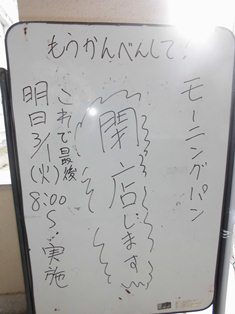 もうかんべんして!
モーニングパン
開店します
これで最後
明日3/1(火)8:00〜実施